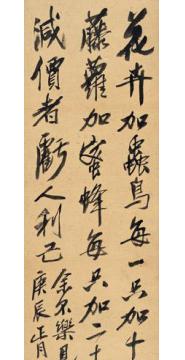 花卉加蟲鳥每一只加十
藤蘿加蜜蜂每只加二十
減價者虧人利己
余不樂見
庚辰正月